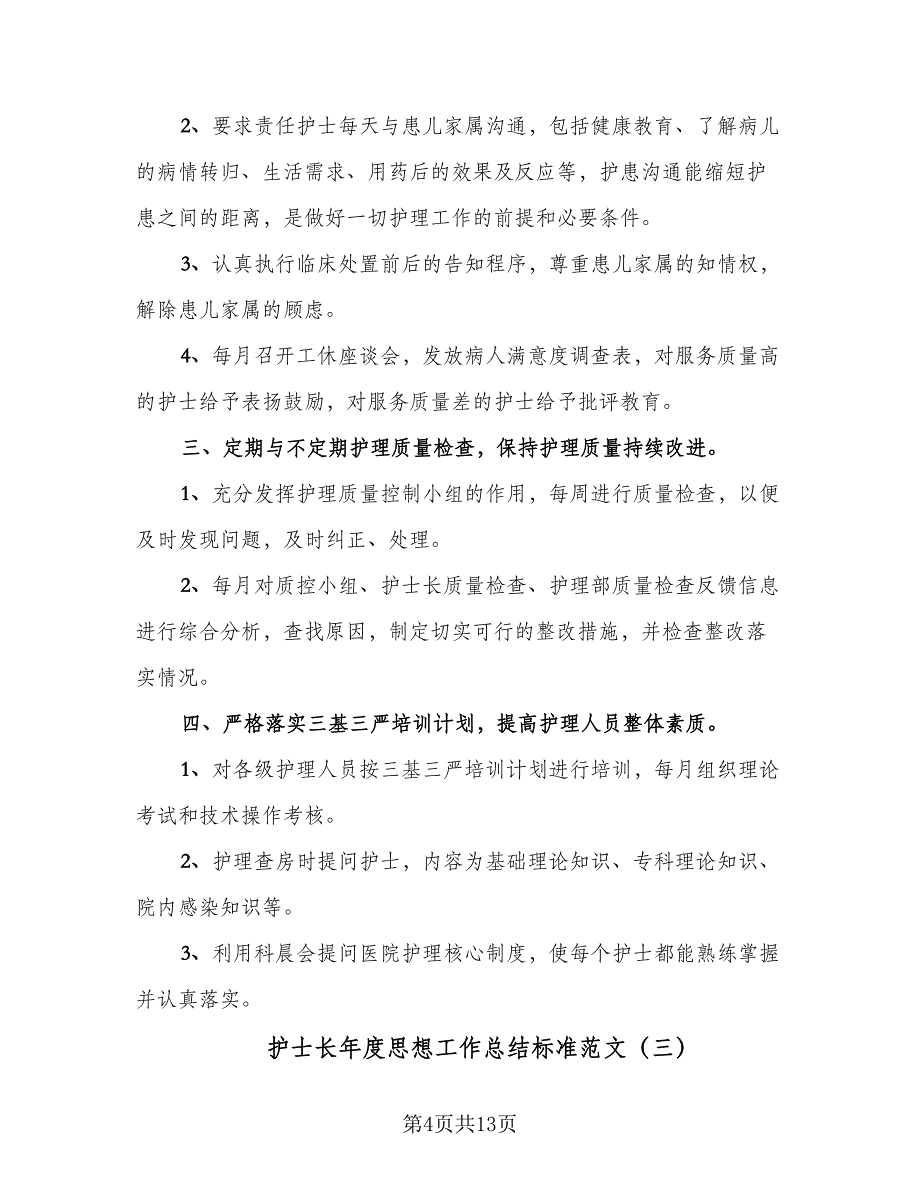 2、要求责任护士每天与患儿家属沟通，包括健康教育、了解病儿
的病情转归、生活需求、用药后的效果及反应等，护患沟通能缩短护
患之间的距离，是做好一切护理工作的前提和必要条件。
3、认真执行临床处置前后的告知程序，尊重患儿家属的知情权，
解除患儿家属的顾虑。
4、每月召开工休座谈会，发放病人满意度调查表，对服务质量高
的护士给予表扬鼓励，对服务质量差的护士给予批评教育。
三、定期与不定期护理质量检查，保持护理质量持续改进。
1、充分发挥护理质量控制小组的作用，每周进行质量检查，以便
及时发现问题，及时纠正、处理。
2、每月对质控小组、护士长质量检查、护理部质量检查反馈信息
进行综合分析，查找原因，制定切实可行的整改措施，并检查整改落
实情况。
四、严格落实三基三严培训计划，提高护理人员整体素质。
1、对各级护理人员按三基三严培训计划进行培训，每月组织理论
考试和技术操作考核。
2、护理查房时提问护士，内容为基础理论知识、专科理论知识、
院内感染知识等。
3、利用科晨会提问医院护理核心制度，使每个护士都能熟练掌握
并认真落实。
护士长年度思想工作总结标准范文（三）
第4页共13页